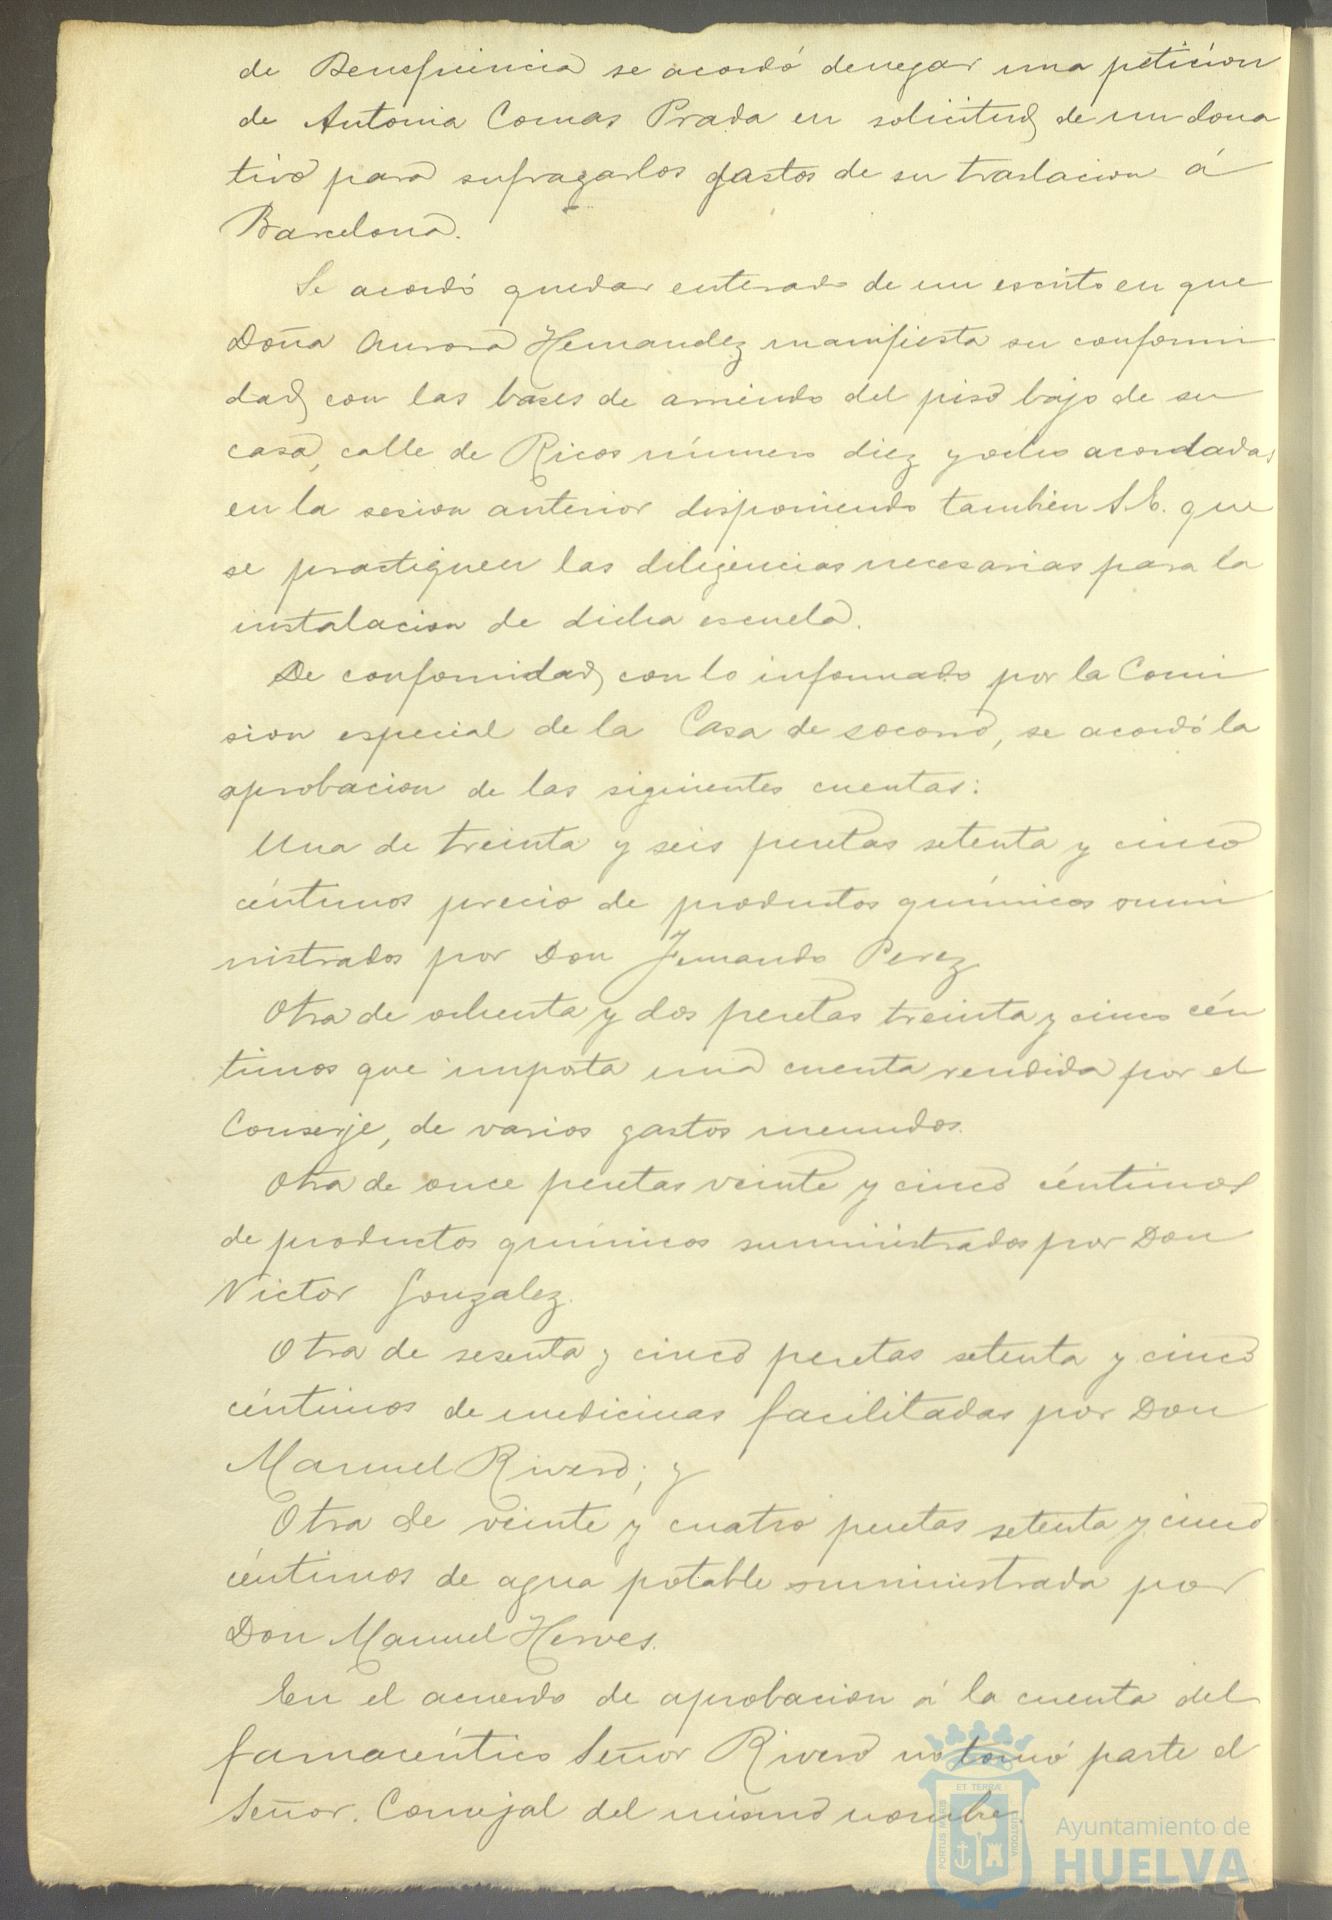 de Beneficencia se acordó denegar una petición
de Antonia Comas Prada en solicitud de un dona
tivo para sufragar los gastos de su traslacion á
Barcelona.
Se acordó quedar enterado de un escrito en que
Doña Aurora Hernandez manifiesta su conformi
dad con las bases de arriendo del piso bajo de su
casa, calle de Ricos número diez y ocho acordadas
en la sesion anterior disponiendo tambien S.E. que
se practiquen las diligencias necesarias para la
instalacion de dicha escuela.
De conformidad con lo informado por la Comi
sion especial de la Casa de socorro, se acordó la
aprobacion de las siguientes cuentas:
Una de treinta y seis pesetas setenta y cinco
céntimos precio de productos químicos sumi
nistrados por Don Fernando Perez
Otra de ochenta y dos pesetas treinta y cinco cén
timos que importa una cuenta rendida por el
Conserje, de varios gastos menudos.
Otra de once pesetas veinte y cinco céntimos
de productos químicos suministrados por Don
Victor Gonzalez.
Otra de sesenta y cinco pesetas setenta y cinco
céntimos de medicinas facilitadas por Don
Manuel Rivero; y
Otra de veinte y cuatro pesetas setenta y cinco
céntimos de agua potable suministrada por
Don Manuel Herves.
En el acuerdo de aprobacion á la cuenta del
farmacéutico Señor Rivero no tomó parte el
Señor. Concejal del mismo nombre.
ET TERRÆ
PORTUS MARIS
CUSTODIA
Ayuntamiento de
HUELVA